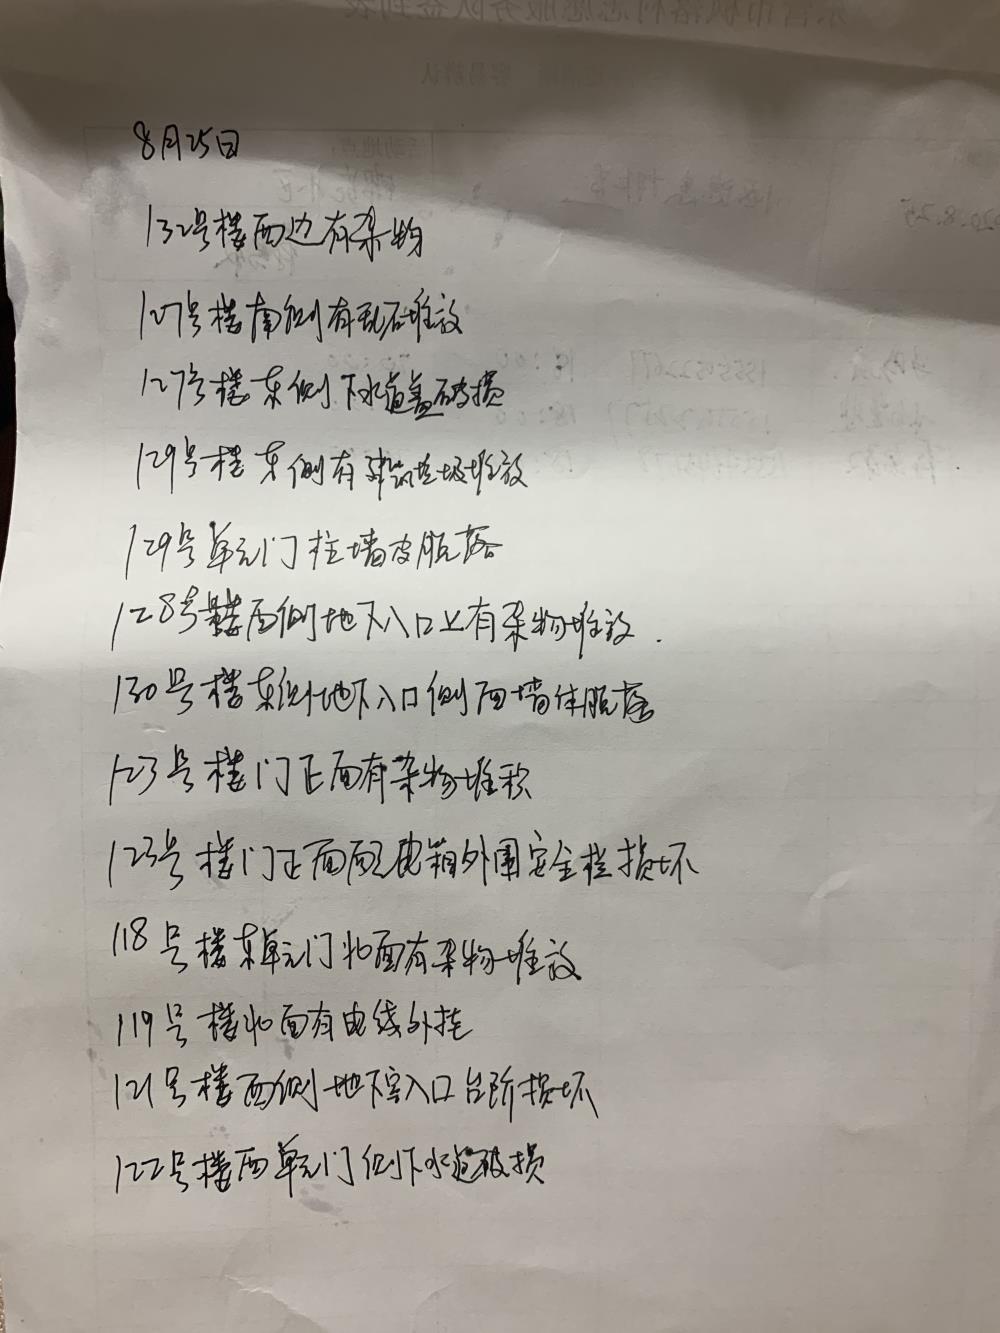 8月25日
132号楼西边有杂物
127号楼南侧有乱石堆放
127号楼东侧下水道盖破损
129号楼东侧有建筑垃圾堆放
129号单元门柱墙皮脱落
128号楼西侧地下入口上有杂物堆放.
130号楼东侧地下入口侧面墙体脱落
123号楼门正面有杂物堆积
123号楼门正面配电箱外围安全栏损坏
118号楼东单元门北面有杂物堆放
119号楼北面有电线外挂
121号楼西侧地下室入口台阶损坏
122号楼西单元门侧下水道破损